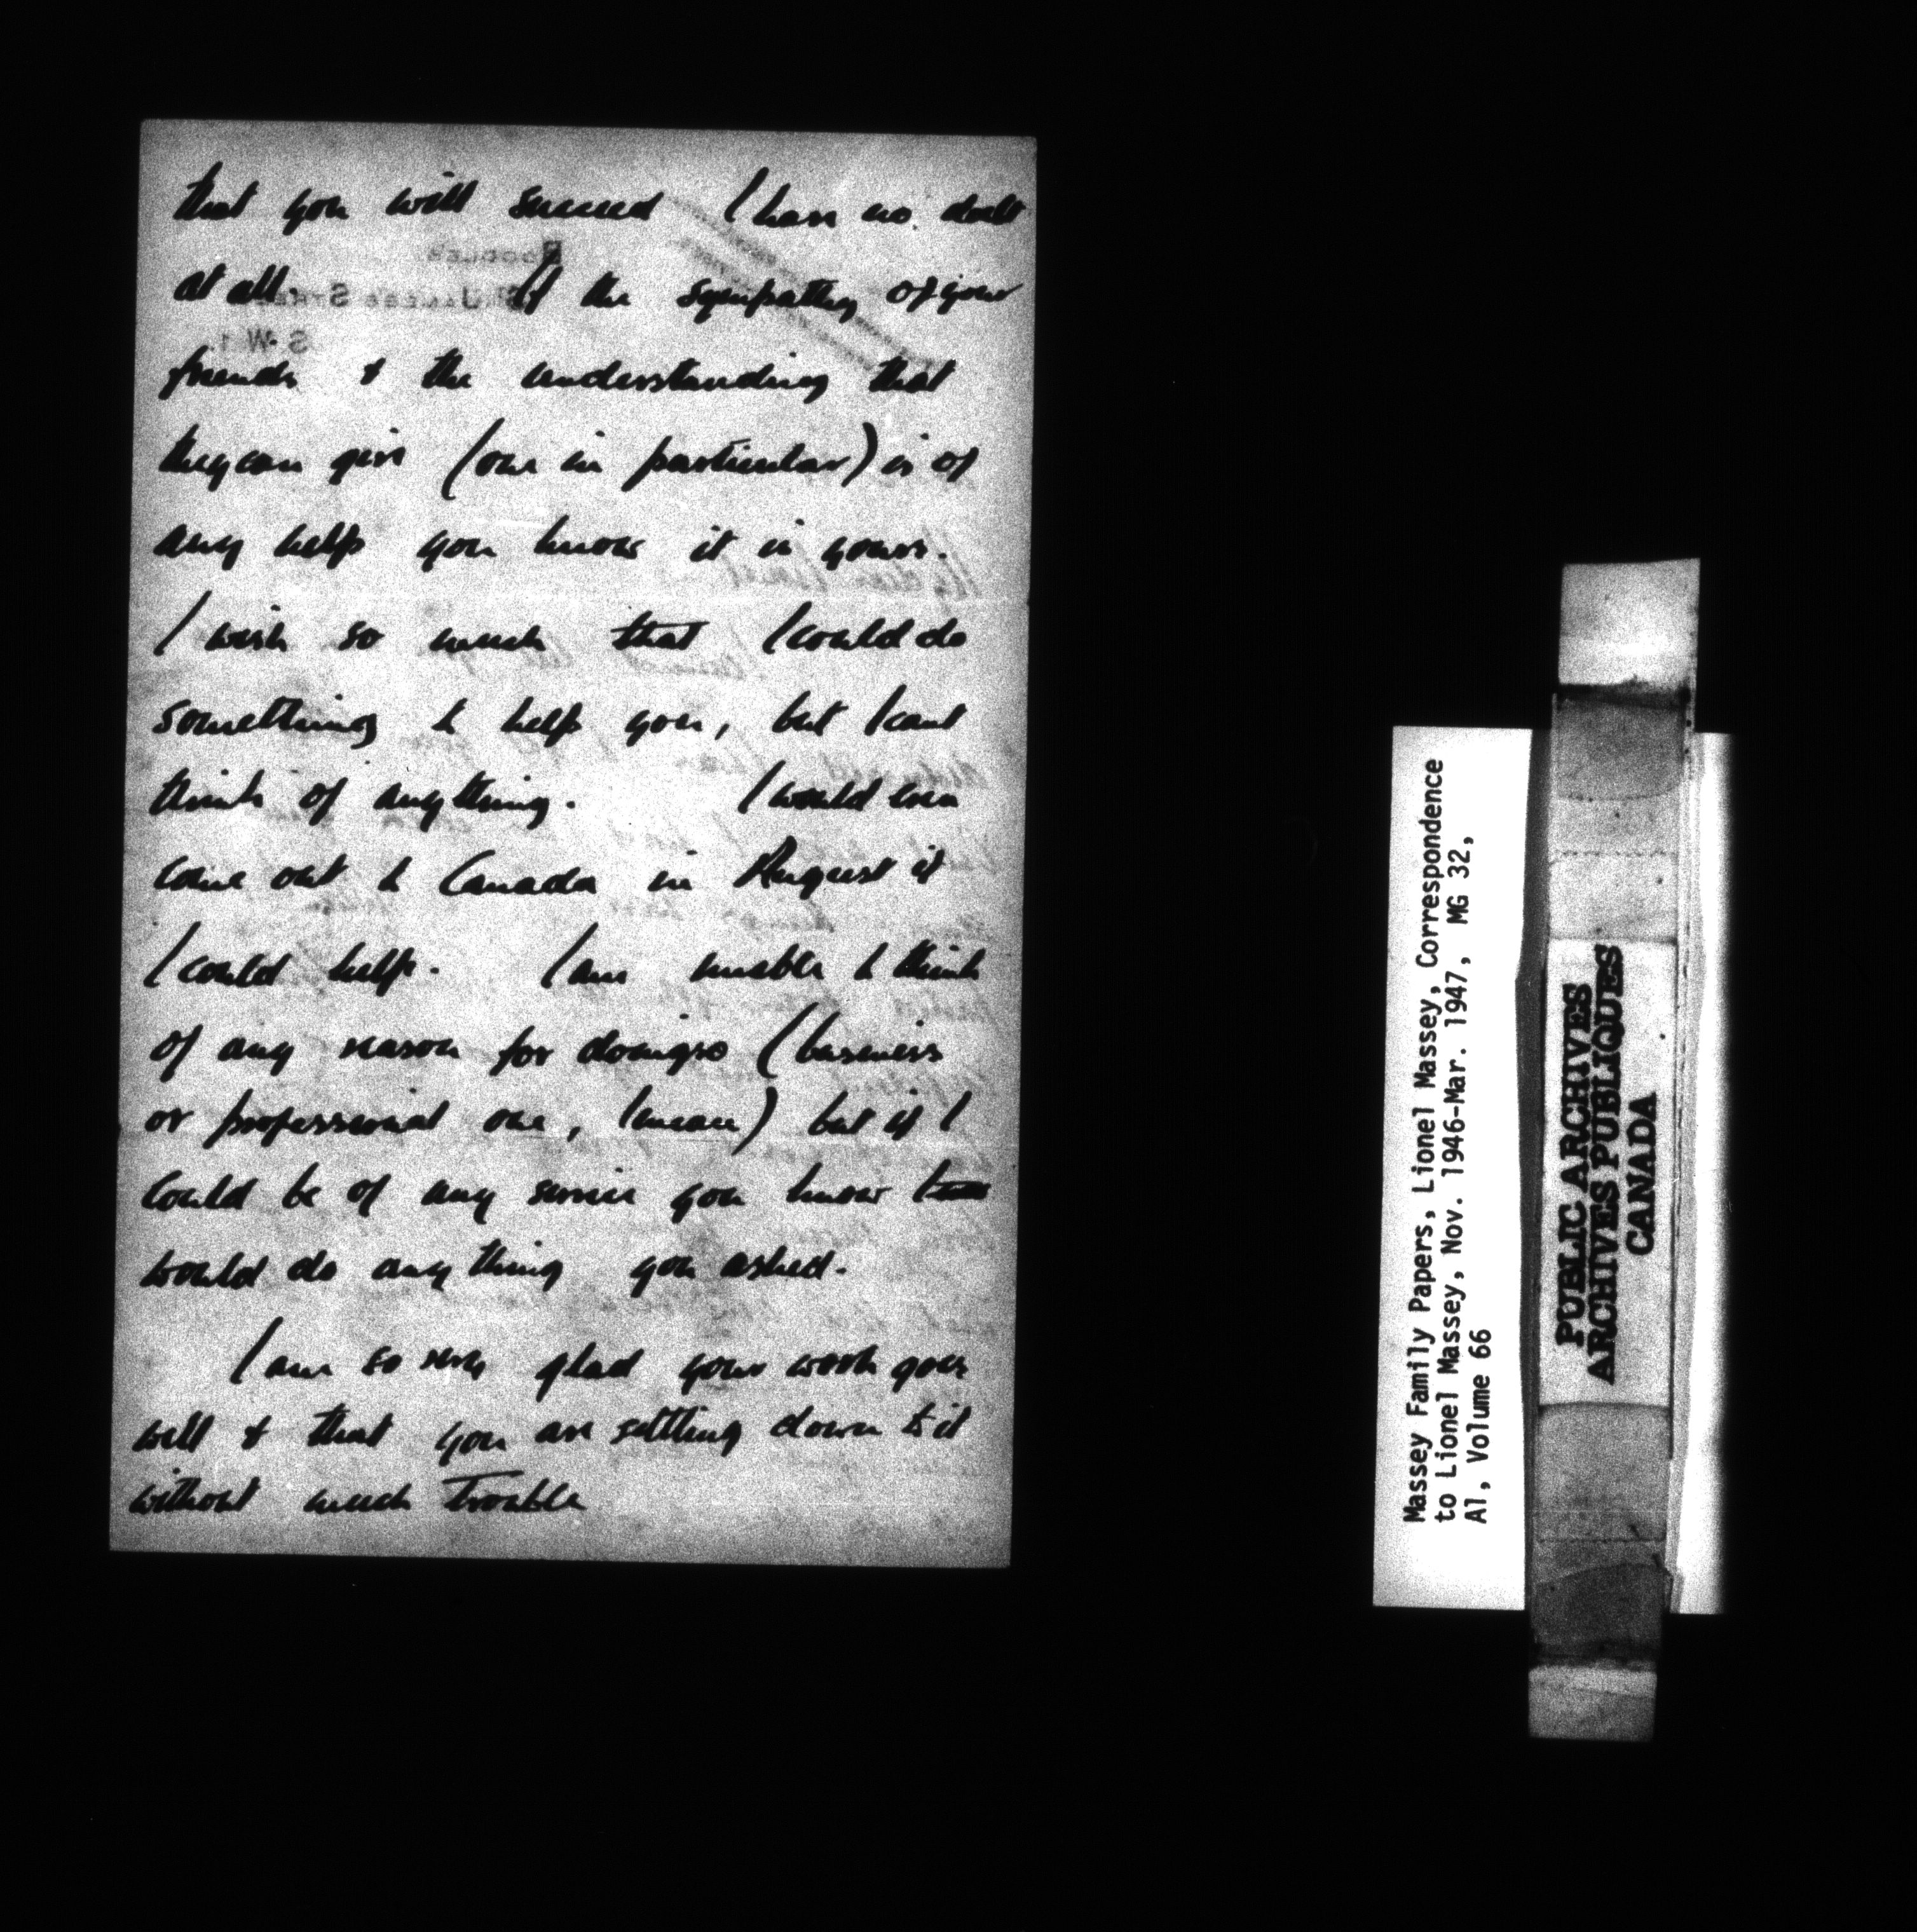 that you will succeed I have no doubt
at all. If the sympathy of your
friends & the understanding that
they can give (one in particular) is of
any help you know it is yours.
I wish so much that I could do
something to help you, but I cant
think of anything. I would even
come out to Canada in August if
I could help. I am unable to think
of any reason for doing so (business
or professional one, I mean) but if I
could be of any service you know I
would do anything you asked.
I am so very glad your work goes
well & that you are settling down to it
without much trouble
BOODLE'S
ST JAMES'S STREET
S.W.1.
Massey Family Papers, Lionel Massey, Correspondence
to Lionel Massey, Nov. 1946-Mar. 1947, MG 32,
A1, Volume 66
PUBLIC ARCHIVES
ARCHIVES PUBLIQUES
CANADA